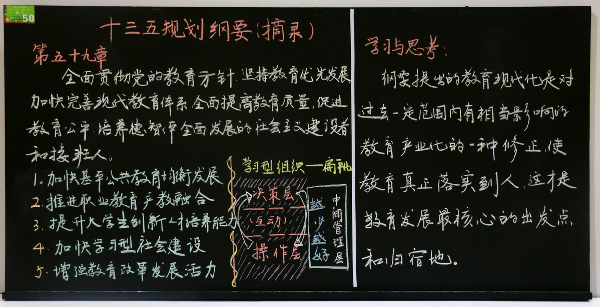 50
十三五规划纲要(摘录)
第五十九章
全面贯彻党的教育方针 坚持教育优先发展
加快完善现代教育体系 全面提高教育质量 促进
教育公平 培养德智体全面发展的社会主义建设者
和接班人。
1.加快基本公共教育均衡发展
2.推进职业教育产教融合
3.提升大学生创新人才培养能力
4.加快学习型社会建设
5.增强教育改革发展活力
学习型组织—扁平
决策层
互动
操作层
越少越好
中间管理层
学习与思考:
纲要提出的教育现代化是对
过去一定范围内有相当影响的
教育产业化的一种修正,使
教育真正落实到人,这才是
教育发展最核心的出发点
和归宿地。